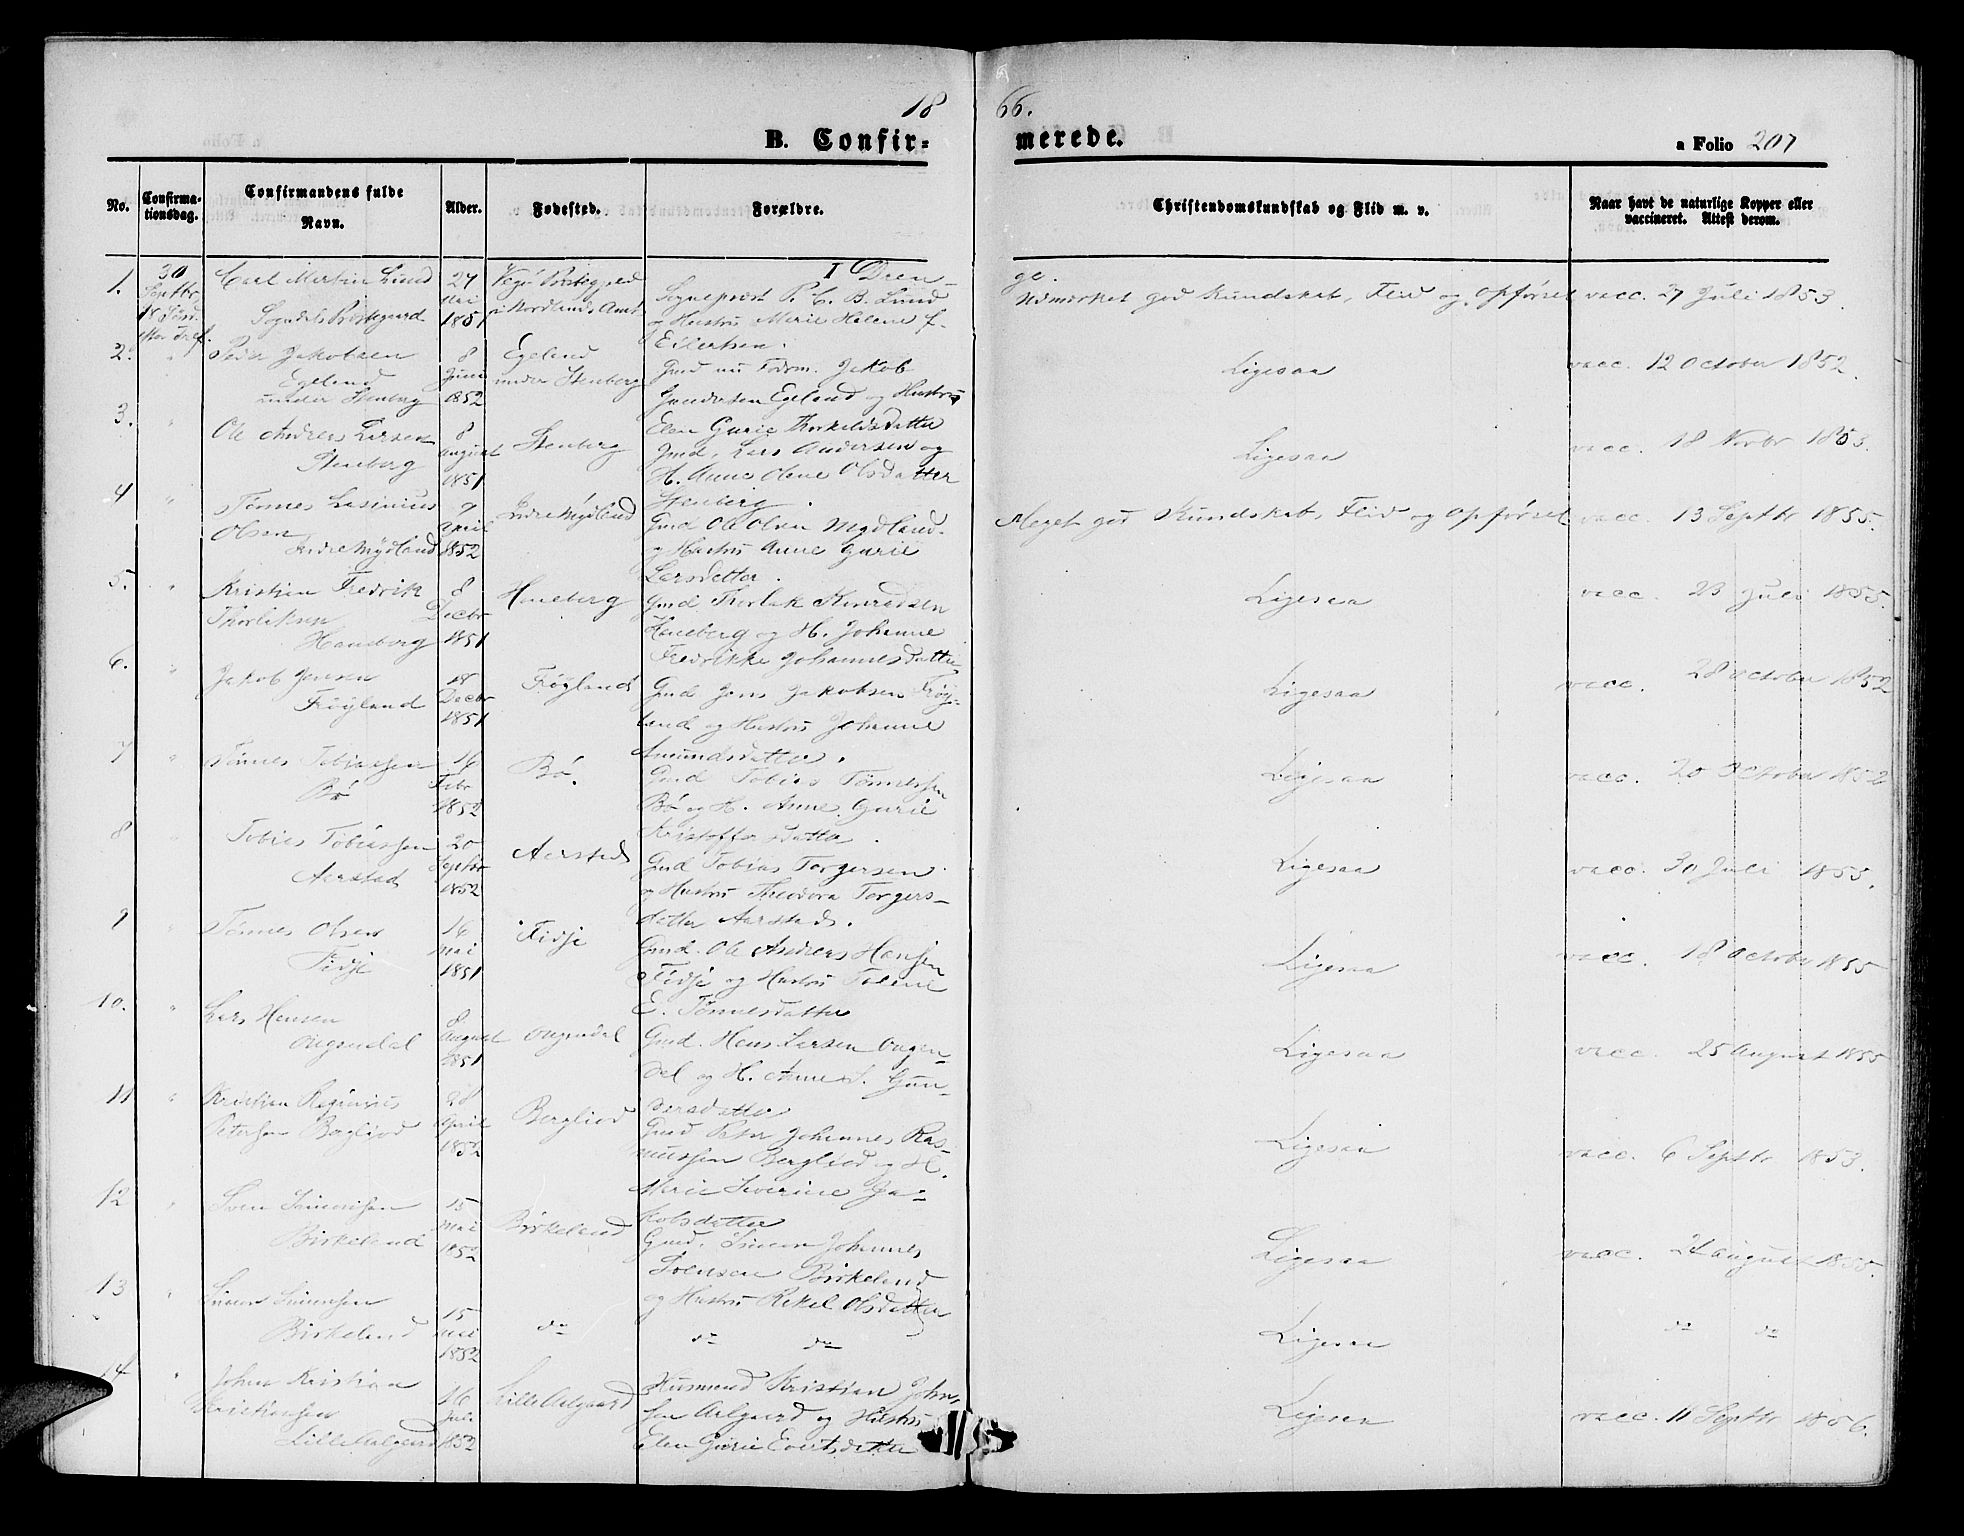 1866.
B. Confirmerede.
a Folio 207
No.
Confirmationsdag.
Confirmandens fulde Navn.
Alder.
Fødested.
Forældre.
Christendomskundskab og Flid m. v.
Naar havt de naturlige Kopper eller vaccineret. Attest derom.
I Drenge.
1.
30 Septbr
18 Sönd.
efter Tref.
Carl Martin Lund
Sogndals Præstegaard
27 Mai 1851
i Nordlands Amt
Sognepræst P. C. B. Lund
og Hustru Marie Helene f.
Eilertsen.
Udmærket god Kundskab, Flid og Opførsel
vacc. 27 Juli 1853.
2.
"
Peder Jakobsen
Egeland
under Stenberg
8 Juni 1852
Egeland
under Stenberg
Gmd nu Fodrm. Jakob
Gundersen Egeland og Hustru
Elen Gurie Thorkeldsdatter
Ligesaa
vacc. 12 October 1852.
3.
"
Ole Andreas Larsen
Steneberg
8 August 1851
Stenberg
Gmd. Lars Andersen og
H. Anne Olene Olsdatter
Stenberg.
Ligesaa
vacc. 18 Novbr 1853.
4
"
Tönnes Lasinius
Olsen
Indre Mydland
9 April 1852
Indre Mydland
Gmd Ole Olsen Mydland
og Hustru Anne Gurie
Larsdatter.
Meget god Kundskab, Flid og Opførsel
vacc. 13 Septbr 1855.
5.
"
Kristian Fredrik
Thorlaksen
Haneberg
8 Decbr 1851
Haneberg
Gmd Thorlak Konradsen
Haneberg og H. Johanne
Fredrikke Johannesdatter
Ligesaa
vacc. 23 Juli 1855.
6.
"
Jakob Jensen
Frøyland
18 Decbr 1851
Frøyland
Gmd Jens Jakobsen Frøy-
land og Hustru Johanne
Amundsdatter.
Ligesaa
vacc. 28 October 1852
7
"
Tönnes Tobiassen
Bø
16 Febr 1852
Bø.
Gmd Tobias Tönnessen
Bø og H. Anne Gurie
Kristoffersdatter.
Ligesaa
vacc. 20 October 1852
8
"
Tobias Tobiassen
Aarstad
20 Septbr 1852
Aarstad
Gmd Tobias Torgersen
og Hustru Theodora Torgers-
datter Aarstad.
Ligesaa
vacc. 30 Juli 1855.
9
"
Tönnes Olsen
Fidje
16 Mai 1851
Fidje
Gmd. Ole Andreas Hansen
Fidje og Hustru Tolene
E. Tönnesdatter
Ligesaa
vacc. 18 October 1855
10.
"
Lars Hansen
Ougendal
8 August 1851
Ougendal
Gmd. Hans Larsen Ougen-
dal og H. Anne S. Gun-
dersdatter
Ligesaa
vacc. 25 August 1855
11
"
Kristian Reginius
Petersen Bergliod
28 April 1852
Bergliod
Gmd Peter Johannes Ras-
mussen Bergliod og H.
Marie Severine Ja-
kobsdatter
Ligesaa
vacc. 6 Septbr 1853.
12
"
Sven Simonsen
Birkeland
15 Mai 1852
Birkeland
Gmd. Simon Johannes
Svensen Birkeland
og Hustru Rakel Olsdatter
Ligesaa
vacc. 24 August 1855.
13
"
Simon Simonsen
Birkeland
15 Mai 1852
do
do do
Ligesaa
do do
14
"
Johan Kristian
Kristiansen
Lille Aalgaard
16 Juli 1852
Lille Aalgaard
Husmand Kristian John-
sen Aalgaard og Hustru
Elen Gurie Evertsdatter
Ligesaa
vacc. 11 Septbr 1856.